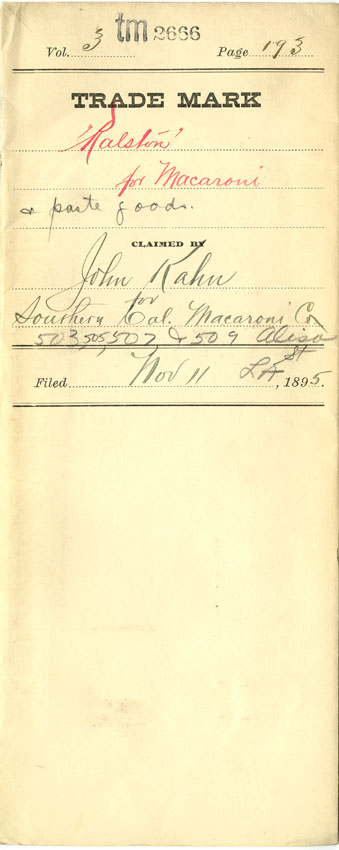 tm 2666
Vol. 3 Page 193
TRADE MARK
'Ralston'
for Macaroni
& paste goods.
CLAIMED BY
John Kahn
for
Southern Cal. Macaroni Co
503, 505, 507, & 509 Aliso
St
LA
Filed Nov 11, 1895.